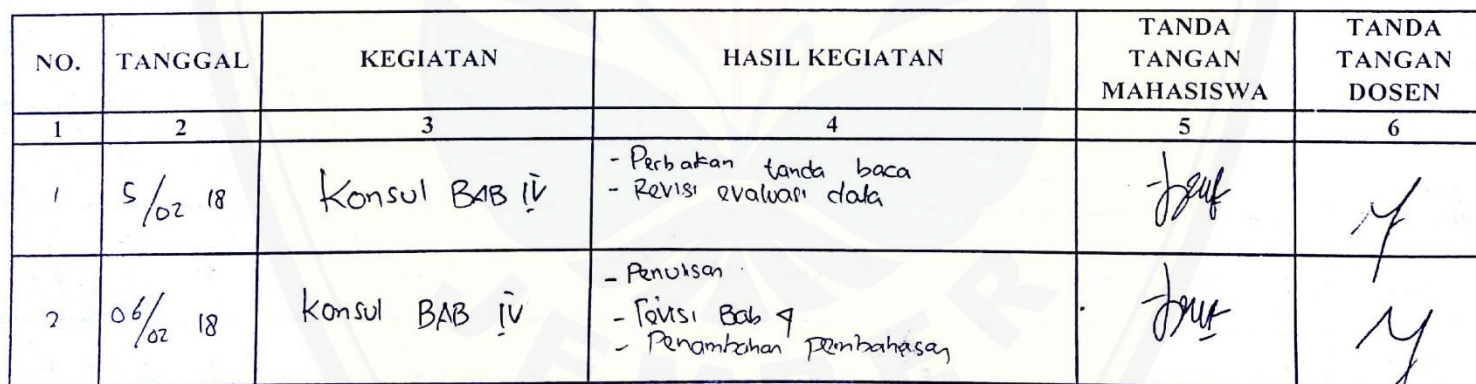 NO. TANGGAL KEGIATAN HASIL KEGIATAN TANDA TANGAN MAHASISWA TANDA TANGAN DOSEN
1 2 3 4 5 6
1 5/02 18 Konsul BAB IV
- Perbakan tanda baca
- Revisi evaluasi data
2 06/02 18 Konsul BAB IV
- Penulisan
- Revisi Bab 4
- Penambahan pembahasan
JEMBER